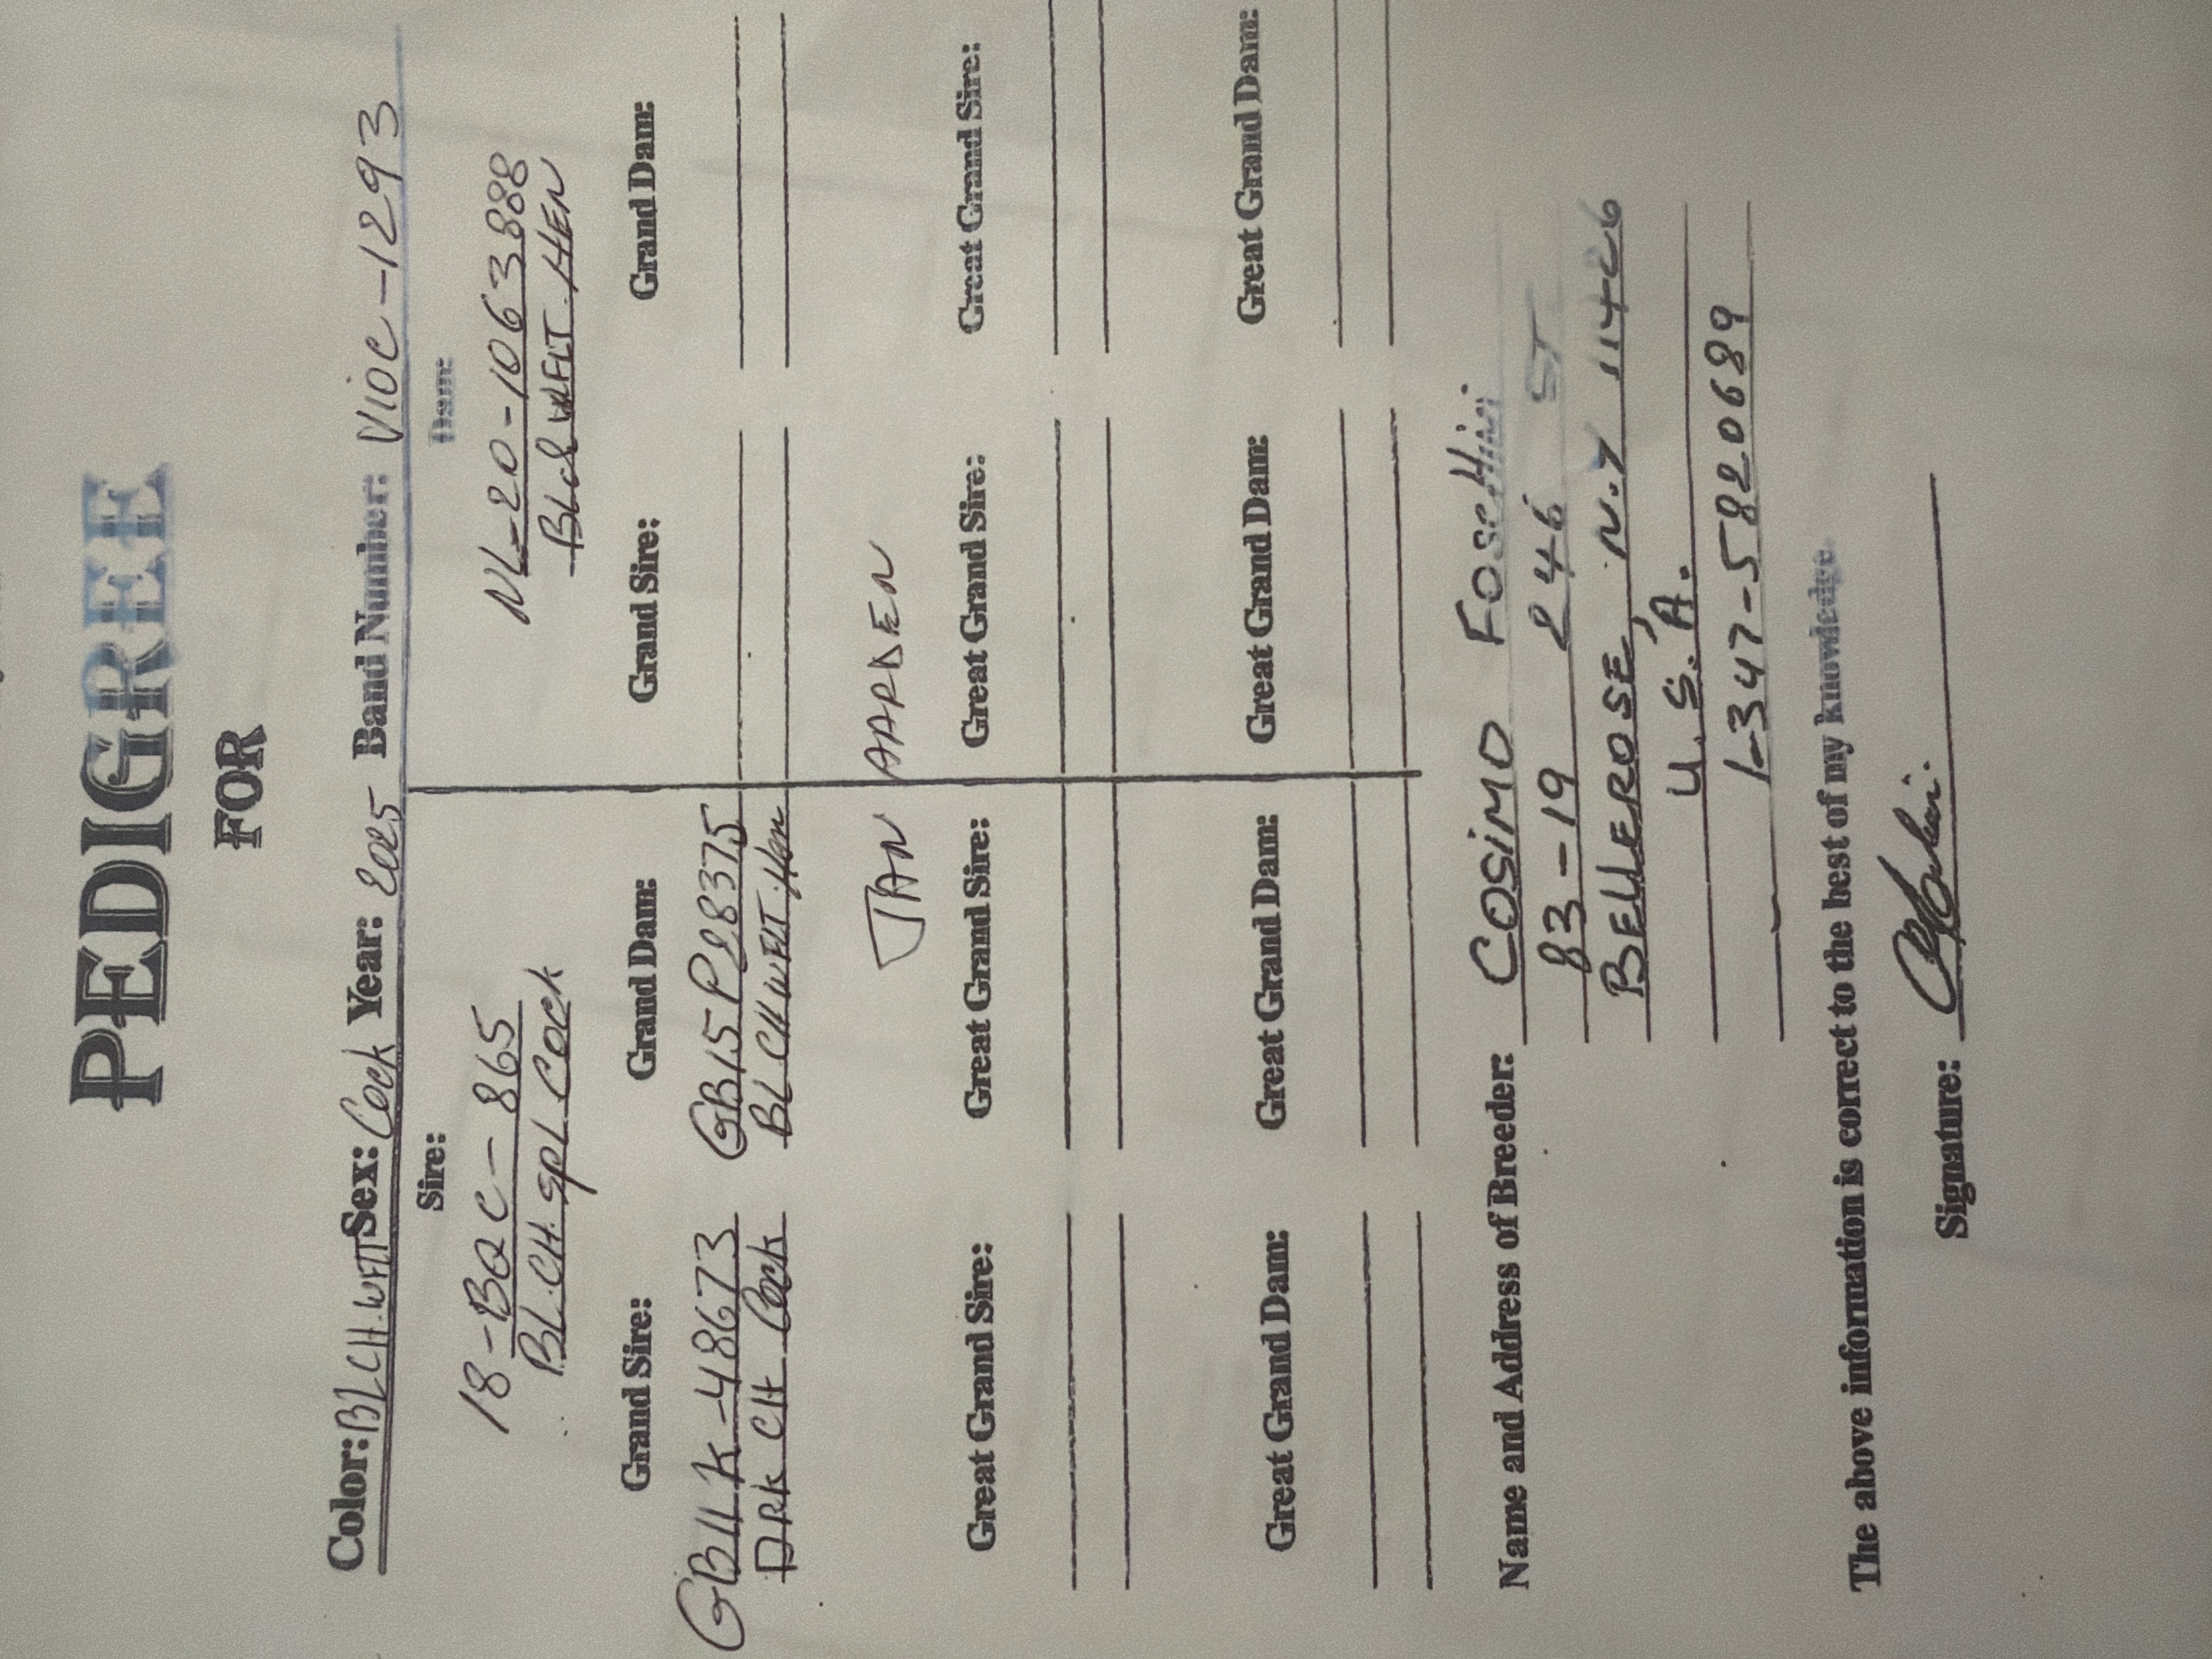 PEDIGREE
FOR
Color: BLCH.WFLT Sex: Cock Year: 2025 Band Number: VIOC-1293
Sire: Dam:
18-BQC-865 NL-20-1063888
BL.CH.SPL Cock BLCH WFLT.HEN
Grand Sire: Grand Dam: Grand Sire: Grand Dam:
GB11K-48673 GB15P28375
DRK CH Cock BLCHWFLT.Hen
JAN AARDEN
Great Grand Sire: Great Grand Sire: Great Grand Sire: Great Grand Sire:
Great Grand Dam: Great Grand Dam: Great Grand Dam: Great Grand Dam:
Name and Address of Breeder: COSIMO
83-19 246 ST
BELLEROSE, N.Y 11426
U.S.A.
1-347-5820689
The above information is correct to the best of my knowledge.
Signature: